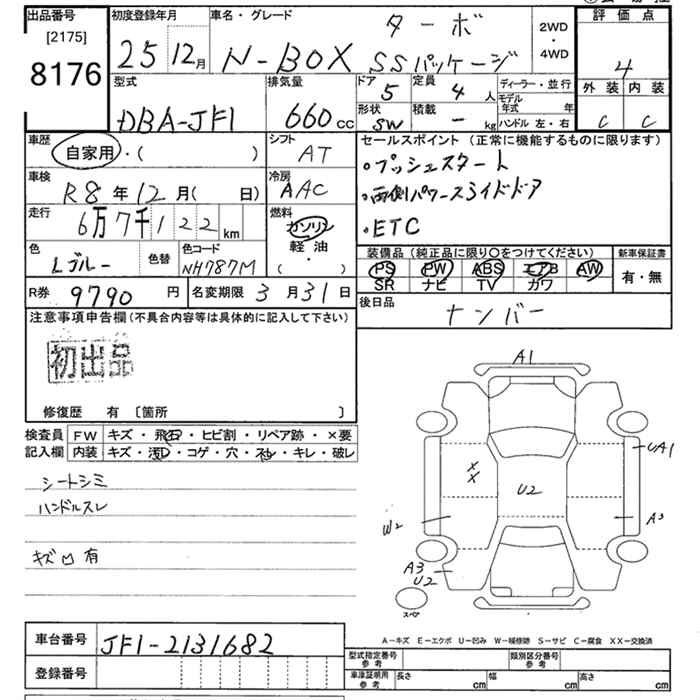 出品番号
[2175]
8176
初度登録年月
25 12月
車名・グレード
ターボ
N-BOX SSパッケージ
2WD
・
4WD
評価点
4
外装 内装
C C
型式
DBA-JF1
排気量
660 cc
ドア
5
定員
4 人
形状
SW
積載
- kg
ディーラー・並行
モデル年式 年
ハンドル 左・右
車歴
自家用・( )
シフト
AT
セールスポイント (正常に機能するものに限ります)
・プッシュスタート
・両側パワースライドドア
・ETC
車検
R8年12月( 日)
冷房
AAC
走行
6万7千122 km
燃料
ガソリン
軽油
( )
色
Lブルー
色替
色コード
NH787M
装備品 (純正品に限り○をつけてください)
PS PW ABS エアB AW
SR ナビ TV カワ
新車保証書
有・無
R券 9790 円
名変期限 3月31日
後日品
ナンバー
注意事項申告欄 (不具合内容等は具体的に記入して下さい)
初出品
修復歴 有 〔箇所 〕
検査員
記入欄
FW キズ・飛石・ヒビ割・リペア跡・×要
内装 キズ・汚れ・コゲ・穴・スレ・キレ・破レ
シートシミ
ハンドルスレ
キズ凹有
A1
UA1
XX
U2
W2
A3
A3
U2
スペア
A-キズ E-エクボ U-凹み W-補修跡 S-サビ C-腐食 XX-交換済
車台番号 JF1-2131682
登録番号
型式指定番号
参考
類別区分番号
参考
車庫証明用
参考
長さ cm 幅 cm 高さ cm